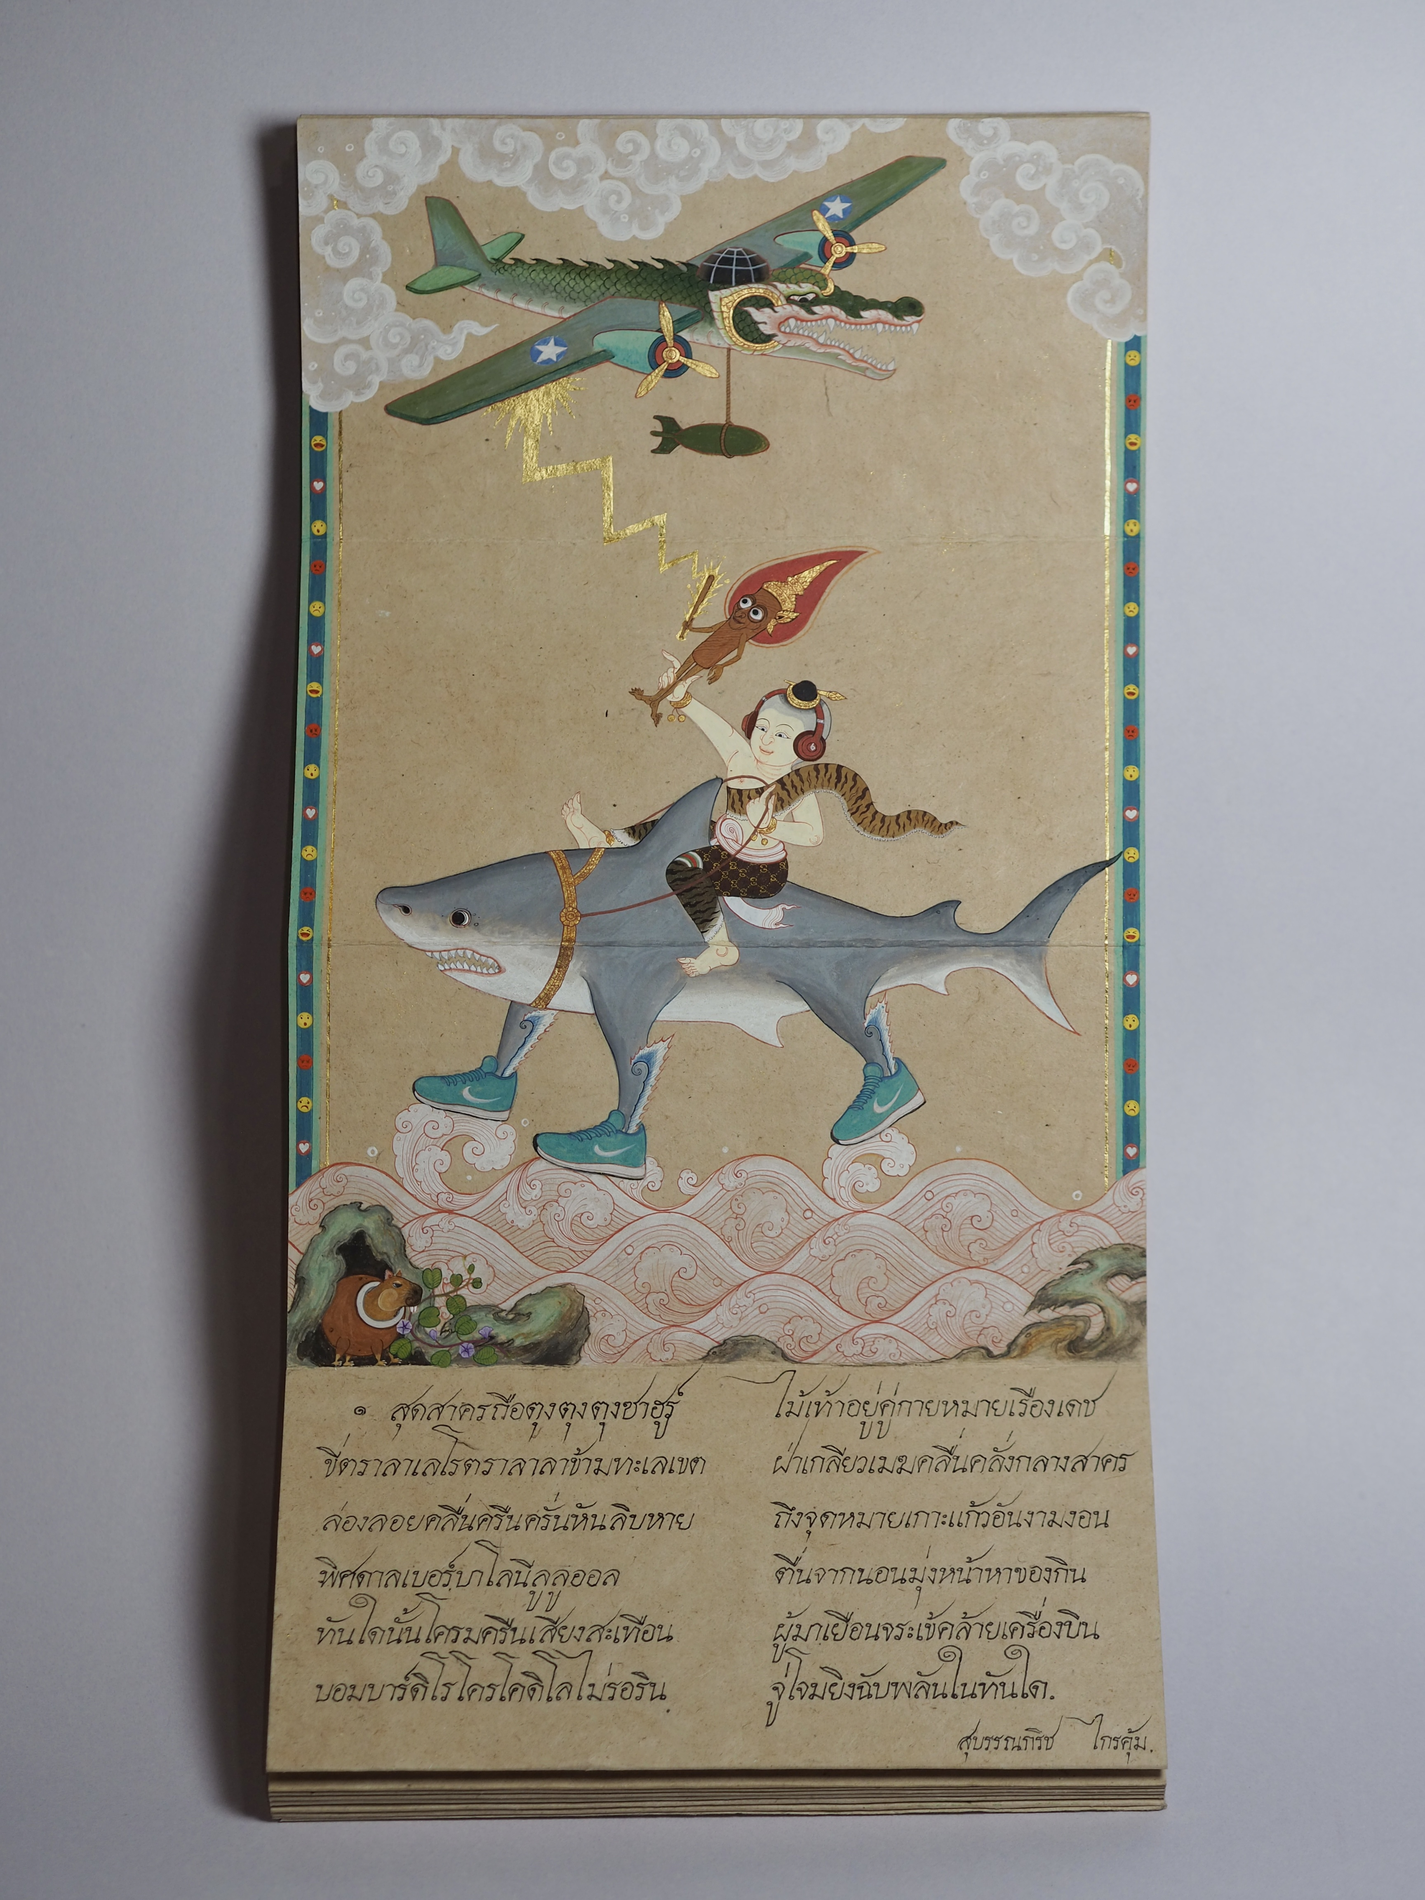 ๑ สุดสาครถือตุงตุงตุงซาฮูร์ ไม้เท้าอยู่คู่กายหมายเรืองเดช
ขี่ตราลาเลโรตราลาลาข้ามทะเลเขต ฝ่าเกลียวเมฆคลื่นคลั่งกลางสาคร
ล่องลอยคลื่นครืนครั่นหันลิบหาย ถึงจุดหมายเกาะแก้วอันงามงอน
พิศดาลเบอร์บาโลนีลูลูออล ตื่นจากนอนมุ่งหน้าหาของกิน
ทันใดนั้นโครมครืนเสียงสะเทือน ผู้มาเยือนจระเข้คล้ายเครื่องบิน
บอมบาร์ดิโรโครโคดิโลไม่รอริน จู่โจมยิงฉับพลันในทันใด.
สุบรรณกริช ไกรคุ้ม.